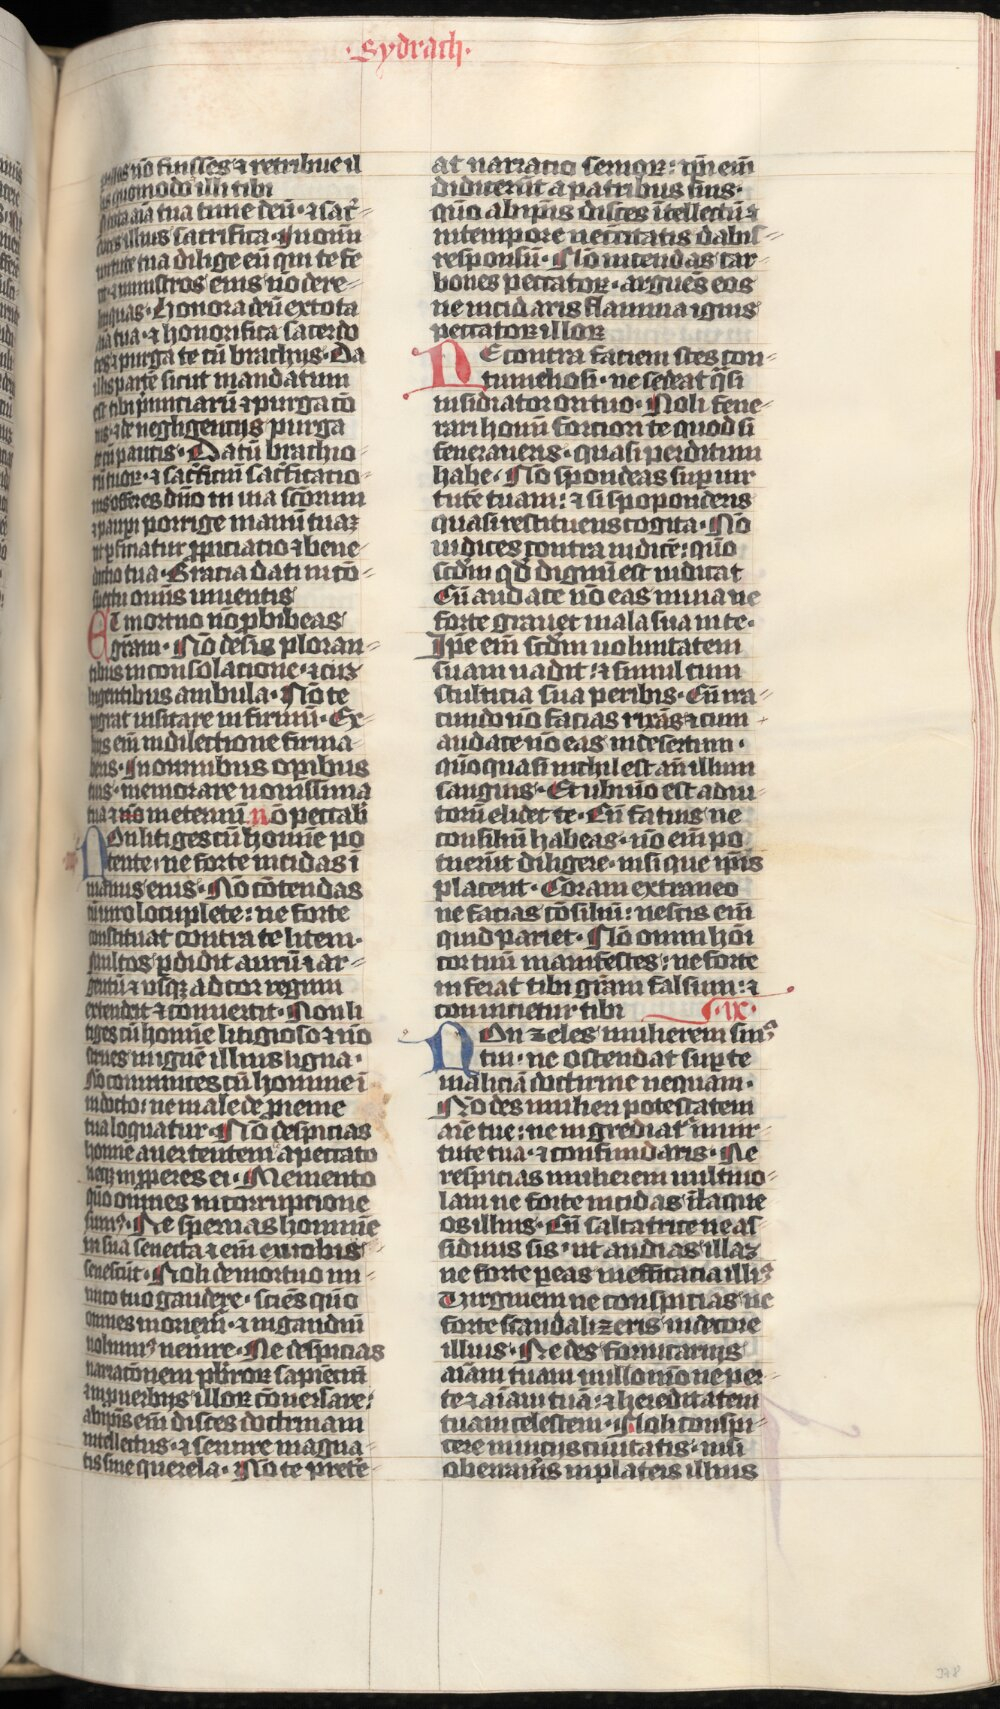 ·Sydrach·
illos nō fuisses ⁊ retribue il
lis quomodo illi tibi
tota aīa tua time deū· ⁊ sac̄
dotes illius sacrifica· In omni
uirtute tua dilige eū qui te fe
cit· ⁊ ministros eius nō dere
linquas· Honora deū ex tota
aīa tua· ⁊ honorifica sacerdo
tes ⁊ purga te cū brachijs· Da
illis partē sicut mandatum
est tibi p̄muciarū ⁊ purgacō
nis· ⁊ de negligentijs purga
te cū paucis· Datū brachio
rū tuoꝝ· ⁊ sac̄ficiū sac̄ficacio
nis offeres dn̄o in uia sc̄orum
⁊ paupi porrige manū tuaꝫ
ut ꝑficiatur ꝓpiciacio ⁊ bene
dictio tua· Gracia dati in cō
spectu om̄is uiuentis
Et mortuo nō phibeas
gr̄am· Nō desis ploran
tibus in consolacione· ⁊ cuꝫ
lugentibus ambula· Nō te
pigrat uisitare infirmū· Ex
hijs em̄ in dilectione firma
beris· In omnibus opibus
tuis· memorare nouissima
tua ⁊ nō in eternū nō peccab̄
Non litiges cū homīe po
tente· ne forte incidas ī
manus eius· Nō cōtendas
cū uiro locuplete: ne forte
constituat contra te litem·
multos ꝑdidit aurū ⁊ ar
gentū ⁊ usqꝫ ad cor regum
extendit ⁊ conuertit· Non li
tiges cū homīe litigioso ⁊ nō
strues in ignē illius ligna·
Nō communices cū homine ī
indocto: ne male de ꝓienie
tua loquatur· Nō despicias
homīe auertentem a peccato
neqꝫ inpperes ei· Memento
quō omnes in corrupcione
sumꝰ· Ne spernas hominē
in sua senecta ⁊ em̄ ex nobis
senescūt· Noli de mortuo ini
mico tuo gaudere· sciēs quō
omnes moriem̄· ⁊ in gaudiū
uolumꝰ uenire· Ne despicias
narracōnem pb̄roꝝ sapienciū
⁊ in ꝓuerbijs illoꝝ cōuersare:
ab ip̄is em̄ disces doctrinam
intellectus· ⁊ seruire magna
tis sine querela· Nō te prete
at narracio senioꝝ: ip̄i em̄
didicerūt a patribus suis·
quō ab ip̄is disces ītellectū ⁊
in tempore necc̄itatis dabis
responsū· Nō incendas car
bones peccatoꝝ· arguēs eos
ne incidaris flamma ignis
peccatoꝝ illoꝝ
Ne contra faciem stes con
tumeliosi· ne sedeat q̄si
insidiator ori tuo· Noli fene
rari homī forciori te quod si
feneraueris· quasi perditum
habe· Nō spondeas sup uir
tutē tuam: ⁊ si spoponderis
quasi restituens cogita· Nō
iudices contra iudicē: quō
scd̄m qd̄ dignū est iudicat
Cū audace nō eas in uia ne
forte grauet mala sua in te·
Ip̄e em̄ scd̄m uoluntatem
suam uadit: ⁊ simul cum
stulticia sua peribis· Cū ira
cundo nō facias rixās ⁊ cum
audace nō eas in desertum·
quō quasi nichil est an̄ illum
sanguis· Et ubi nō est adiu
toriū elidet te· Cū fatuis ne
consiliū habeas· nō em̄ po
tuerūt diligere· nisi que ip̄is
placent· Coram extraneo
ne facias cōsiliū: nescis em̄
quid pariet· Nō omni hōi
cor tuū manifestes: ne forte
inferat tibi gr̄am falsum: ⁊
conuicietur tibi ·ix·
Non zeles mulierem sinꝰ
tui· ne ostendat sup te
maliciā doctrine nequam·
Nō des mulieri potestatem
aīe tue: ne ingrediat̄ in uir
tute tua· ⁊ confundaris· Ne
respicias mulierem multiuo
lam ne forte incidas ī laque
os illius· Cū saltatrice ne as
siduus sis· ut audias illaꝫ
ne forte ꝑeas in efficacia illiꝰ
Uirginem ne conspicias ne
forte scandalizeris in decore
illius· Ne des fornicarijs
aīam tuam in ullo· nō ne per
te ⁊ aīam tuā: ⁊ hereditatem
tuam celestem· Noli conspi
cere in uicis ciuitatis· nisi
oberraūis in plateis illius